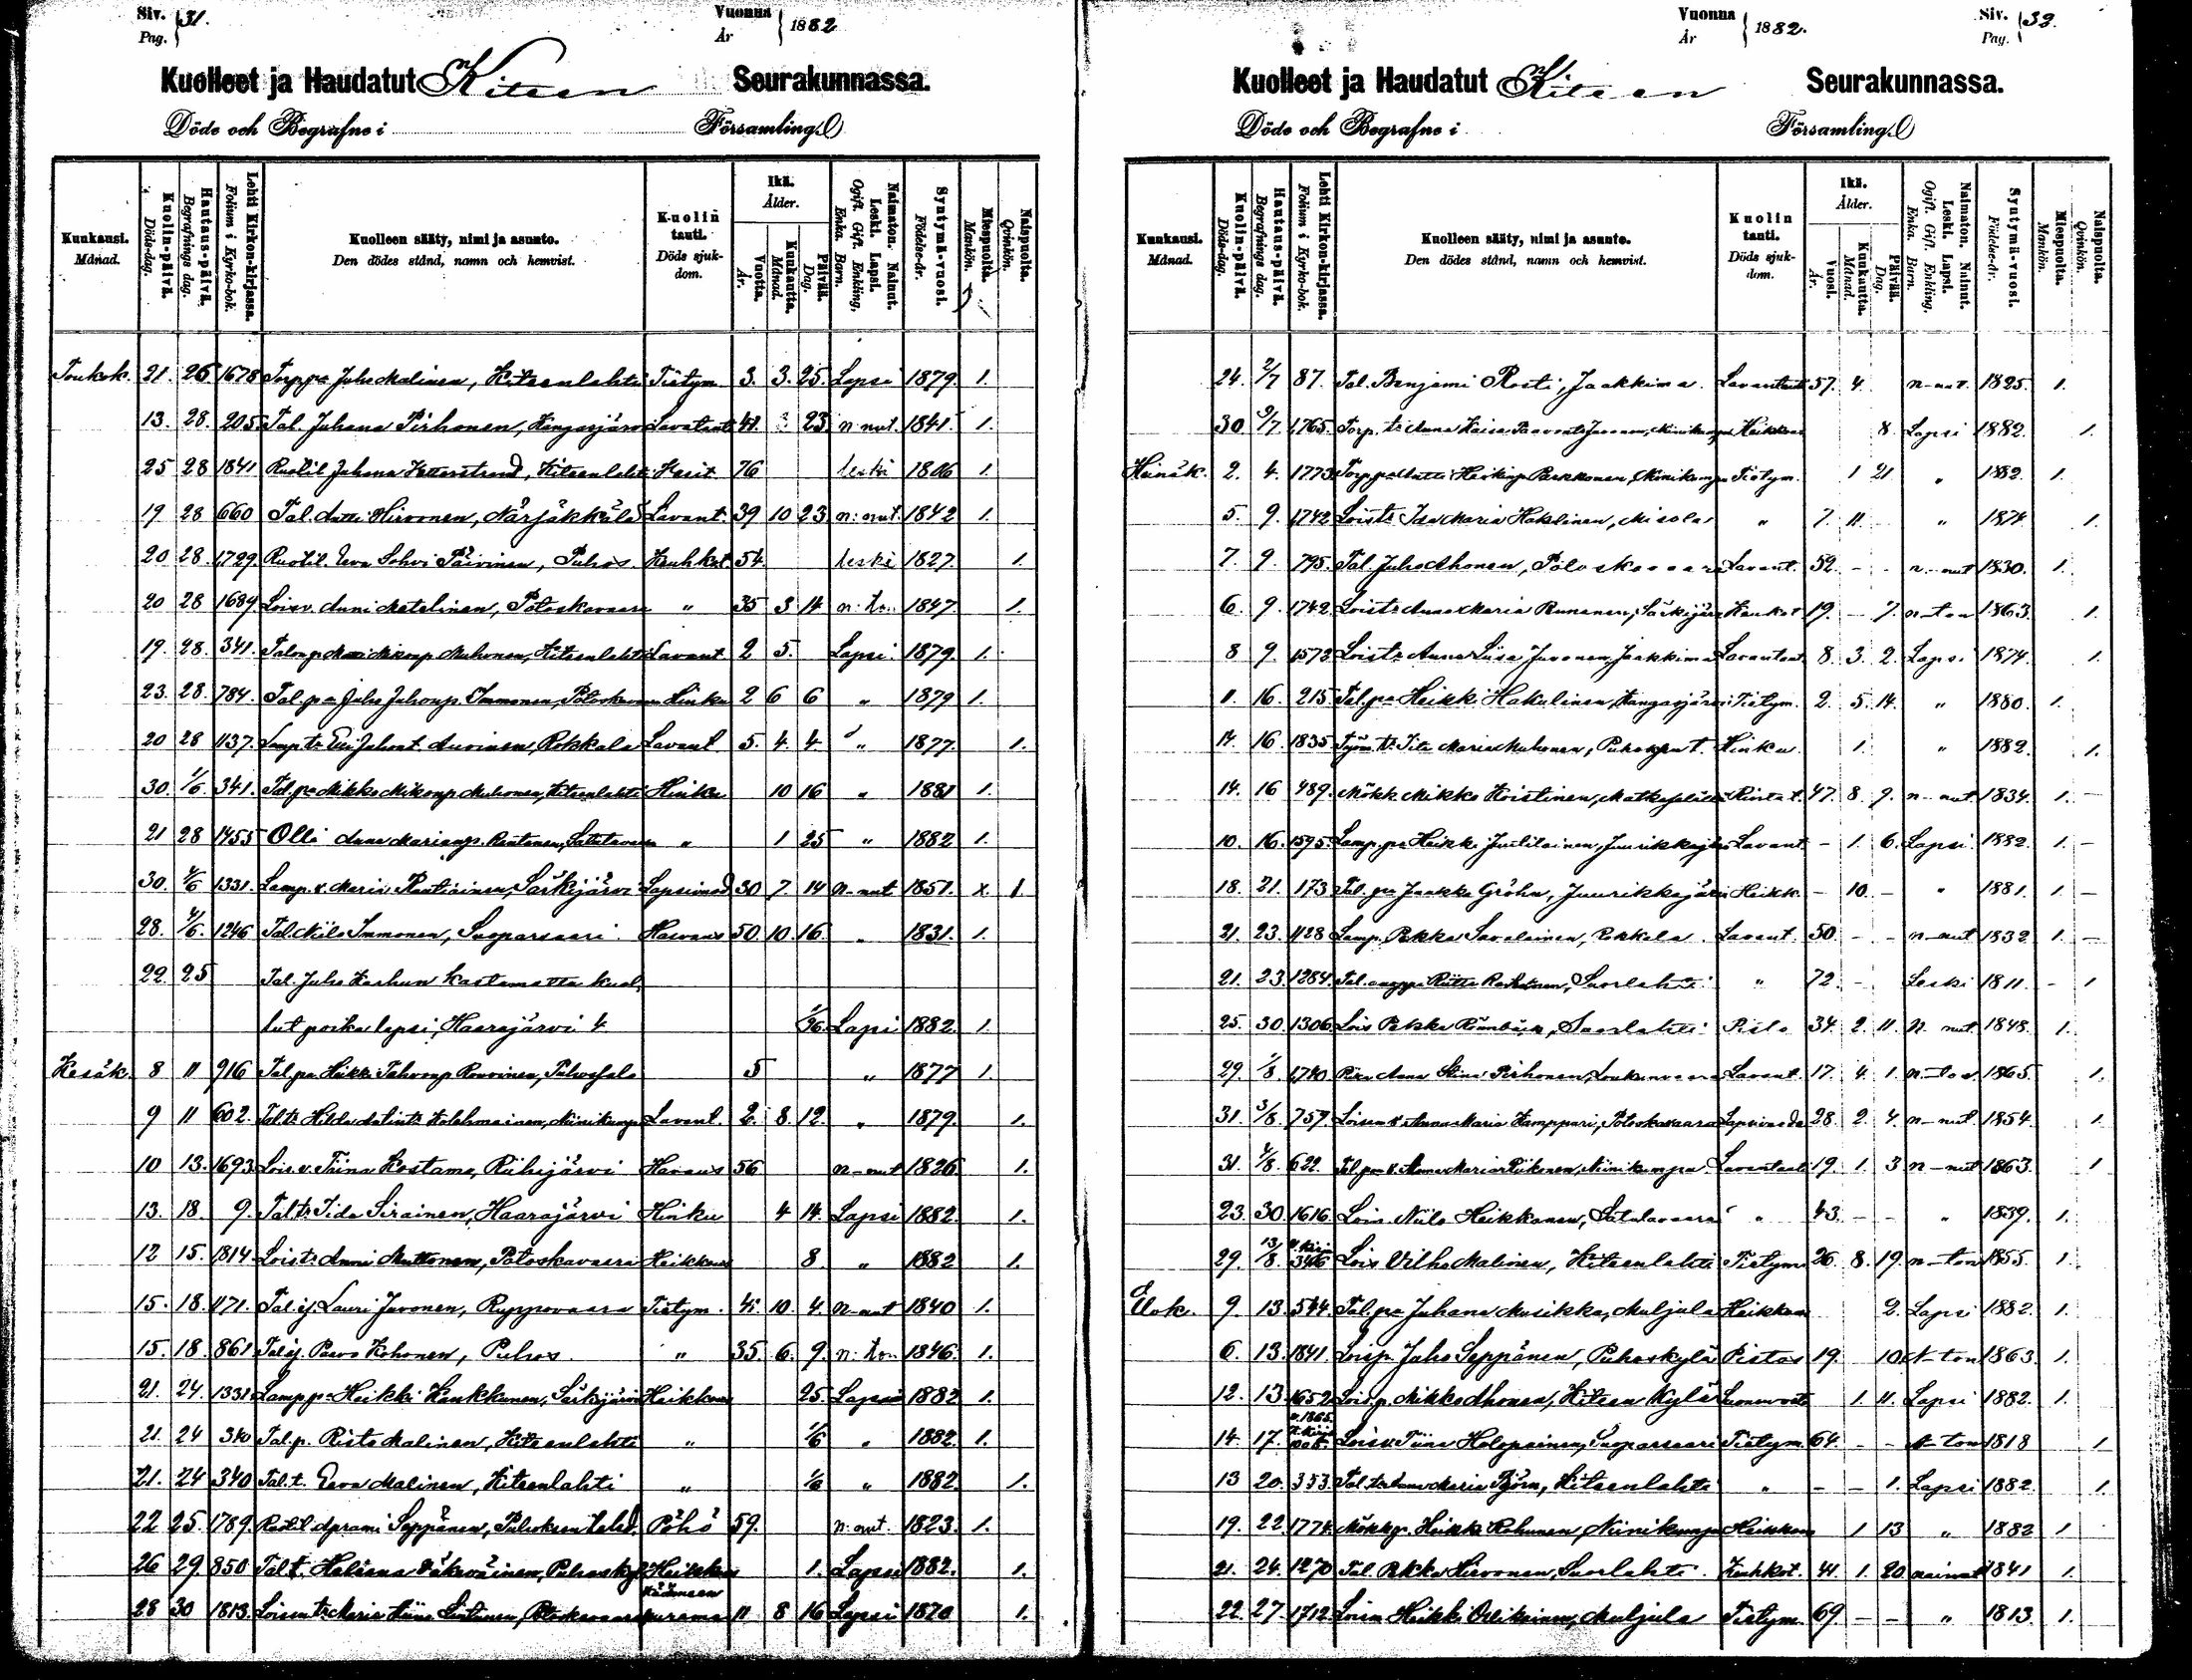 Siv. Pag. 31.
Vuonna År 1882
Kuolleet ja Haudatut Kiteen Seurakunnassa.
Döde och Begrafne i Församling.
Kuukausi. Månad.
Kuolin-päivä. Döds-dag.
Hautaus-päivä. Begrafnings dag.
Lehti Kirkon-kirjassa. Folium i Kyrko-bok.
Kuolleen sääty, nimi ja asunto. Den dödes stånd, namn och hemvist.
Kuolin tauti. Döds sjukdom.
Ikä. Ålder.
Vuotta. År.
Kuukautta. Månad.
Päivää. Dag.
Naimaton. Nainut. Leski. Lapsi. Ogift. Gift. Enkling. Enka. Barn.
Syntymä-vuosi. Födelse-år.
Miespuolta. Mankön.
Naispuolta. Qvinkön.
Toukok. 21. 25 1678 Torp pa Juho Malinen, Kiteenlahti Tietym. 3. 3. 25. Lapsi 1879. 1.
13. 28. 205. Tal. Juhana Pirhonen, Kangasjärvi Lavataut 41. 3 23. n:nut. 1841. 1.
25 28 1841 Ruotil Juhana Zetterstrand, Kiteenlahti 76 leski 1806 1.
19 28 660 Tal. Antti Hirvonen, Närsäkkälä Lavant. 39 10 23 n:nut. 1842 1.
20 28 1729. Ruotil. Eeva Sohvi Päivinen, Puhos. Keuhkot. 54. leski 1827. 1.
20 28 1689. Lois v. Anni Matelinen, Potoskavaara " 35 3 14 n:ton 1847. 1.
19. 28. 341. Muhonen, Kiteenlahti Lavant 2 5. Lapsi 1879. 1.
23. 28. 784. Tal. pa Juho Juhonp. Immonen, Potoskavaara Hinku 2 6 6 " 1879 1.
20 28 1137. Lamp. tr. Juhont. Auvinen, Rokkala Lavant. 5. 4. 4 " 1877. 1.
30. 1/6. 341. Tal. pa Mikko Mikonp Muhonen, Kiteenlahti Hinku 10 16 " 1881 1.
21 28 1455 Olli Anna Marianp. Rautanen, Satulavaara " 1 25 " 1882 1.
30. 4/6 1331. Lamp. v. Maria Rautiainen, Särkijärvi Lapsimad 30 7. 14 n-nut 1851. x 1
28. 4/6. 1246 Tal. Niilo Immonen, Suoparsaari. Havaus 50. 10. 16. " 1831. 1.
22. 25 Tal. Juho Karhun kastamatta kuol,
lut poika lapsi, Haarajärvi 4 1/36 Lapsi 1882. 1.
Kesäk. 8 11 916 Tal. pa Heikki Rouvinen, 5 " 1877 1.
9 11 602. Tal. tr. Hilda Kolehmainen, Niinikumpu Lavant. 2. 8. 12. " 1879. 1.
10 13. 1693 Lois. v. Tiina Kostamo, Riihijärvi Havaus 56 n-nut 1826. 1.
13. 18. 9. Tal. tr. Iida Sirainen, Haarajärvi Hinku 4 14. Lapsi 1882. 1.
12 15. 1814 Lois tr. Anni Muttonen, Potoskavaara Heikkous 8. " 1882 1.
15. 18. 1171. Tal. ij. Lauri Juvonen, Ruppovaara Tietym. 41. 10. 4. n-nut 1840 1.
15. 18. 861 Tal ij. Paavo Kohonen, Puhos. " 35. 6. 9. n:ton. 1846. 1.
21. 24. 1331 Lamp pa Heikki Kankkunen, Särkijärvi Heikkous 25. Lapsi 1882 1.
21. 24 340 Tal. p. Risto Malinen, Kiteenlahti " 1/6 " 1882. 1.
21. 24 340 Tal. t. Eeva Malinen, Kiteenlahti " 1/6 " 1882. 1.
22 25. 1789. Ruotil Aprami Seppänen, Pöhö 59. n:nut. 1823. 1.
26 29. 850 Tal t. Heikkous 1. Lapsi 1882. 1.
28 30 1813. Loisen tr. Maria Potoskavaara 11 8 16 Lapsi 1870 1.
Vuonna År 1882.
Siv. Pag. 32.
Kuolleet ja Haudatut Kiteen Seurakunnassa.
Döde och Begrafne i Församling.
Kuukausi. Månad.
Kuolin-päivä. Döds-dag.
Hautaus-päivä. Begrafnings dag.
Lehti Kirkon-kirjassa. Folium i Kyrko-bok.
Kuolleen sääty, nimi ja asunto. Den dödes stånd, namn och hemvist.
Kuolin tauti. Döds sjukdom.
Ikä. Ålder.
Vuosi. År.
Kuukautta. Månad.
Päivää. Dag.
Naimaton. Nainut. Leski. Lapsi. Ogift. Gift. Enkling. Enka. Barn.
Syntymä-vuosi. Födelse-år.
Miespuolta. Mankön.
Naispuolta. Qvinkön.
24. 2/7 87. Tal. Benjami Rosti, Jaakkima. Lavantaut 57. 4. n-nut. 1825. 1.
30 9/7. 1765. Torp. tr. Anna Kaisa Niinikumpu Heikkous 8. Lapsi 1882. 1.
Heinäk. 2. 4. 1773 Torp pa Antti Heikinp Parkkonen, Niinikumpu Tietym. 1 21 " 1882. 1.
5. 9. 1742 Lois tr. Ida Maria Hakulinen, Misola " 7. 11. " 1874. 1.
7. 9. 795. Tal. Juho Ahonen, Potoskavaara Lavant. 52. - - n-nut 1830. 1.
6. 9. 1742. Lois tr Anna Maria Särkijärvi Keuhkot 19. - 7. n-ton 1863. 1.
8 9. 1573 Lois tr Anna Liisa Juvonen, Jaakkima Lavantaut. 8. 3. 2. Lapsi 1874. 1.
11. 16. 215. Tal. pa Heikki Hakulinen, Kangasjärvi Tietym. 2. 5. 14. " 1880. 1.
14. 16. 1835. Työm. tr. Maria Muhonen, Hinku 1. " 1882. 1.
14. 16 489. Mökk Mikko Koistinen, Rintat. 47. 8 9. n-nut 1834. 1. -
10. 16. 1595. Lamp. pa Heikki Juutilainen, Juurikkajärvi Lavant. - 1. 6. Lapsi 1882. 1. -
18. 21. 173 Tal. pa Jaakko Gröhn, Juurikkajärvi Heikk. - 10. - " 1881. 1. -
21. 23. 1128 Lamp. Pekka Savolainen, Rokkala. Lavant. 50. - - n-nut 1832. 1. -
21. 23. 1284. Tal. Riitta Suorlahti " 72. - Leski 1811. - 1
25. 30. 1306. Lois Pekka Suorlahti Pisto 34. 2. 11. n-nut 1848. 1.
29. 1/8. 1740 Anna Stina Pirhonen, Loukunvaara Lavant. 17. 4. 1. n-ton 1865. 1.
31. 3/8. 757. Loisen v. Anna Maria Kamppuri, Potoskavaara Lapsivuode 28. 2. 4. n-nut. 1854. 1.
31. 4/8. 622. Tal. pan v. Anna Maria Piikonen, Niinikumpu Lavantaut 19. 1. 3 n-nut 1863. 1
23. 30. 1616 Lois. Niilo Heikkonen, Satulavaara " 43. - - " 1839. 1.
29. 13/8. 346 Lois Vilho Malinen, Kiteenlahti Tietym 26. 8. 19. n-ton 1855. 1.
Elok. 9. 13. 544. Tal. pa Juhana Musikka, Muljula Heikkous 2. Lapsi 1882. 1.
6. 13. 1841. Lois p. Juho Seppänen, Puhoskylä Pistos 19. 10 N-ton 1863. 1.
12. 13. 1652 Lois. p. Mikko Ahonen, Kiteen Kylä 1. 11. Lapsi 1882. 1.
14. 17. Lois v. Tiina Holopainen, Suoparsaari Tietym. 64. - - n-ton 1818 1
13 20. 353. Tal. tr. Anna Maria Björn, Kiteenlahti " - - 1. Lapsi 1882. 1.
19. 22. 1774. Mökk p. Heikki Rahunen, Niinikumpu Heikkous 1 13 " 1882 1
21. 24. 1270 Tal. Pekka Hirvonen, Suorlahti. Keuhkot. 41. 1. 20 nainut 1841 1.
22. 27. 1712. Loism. Heikki Ollikainen, Muljula Tietym. 69 - - " 1813. 1.